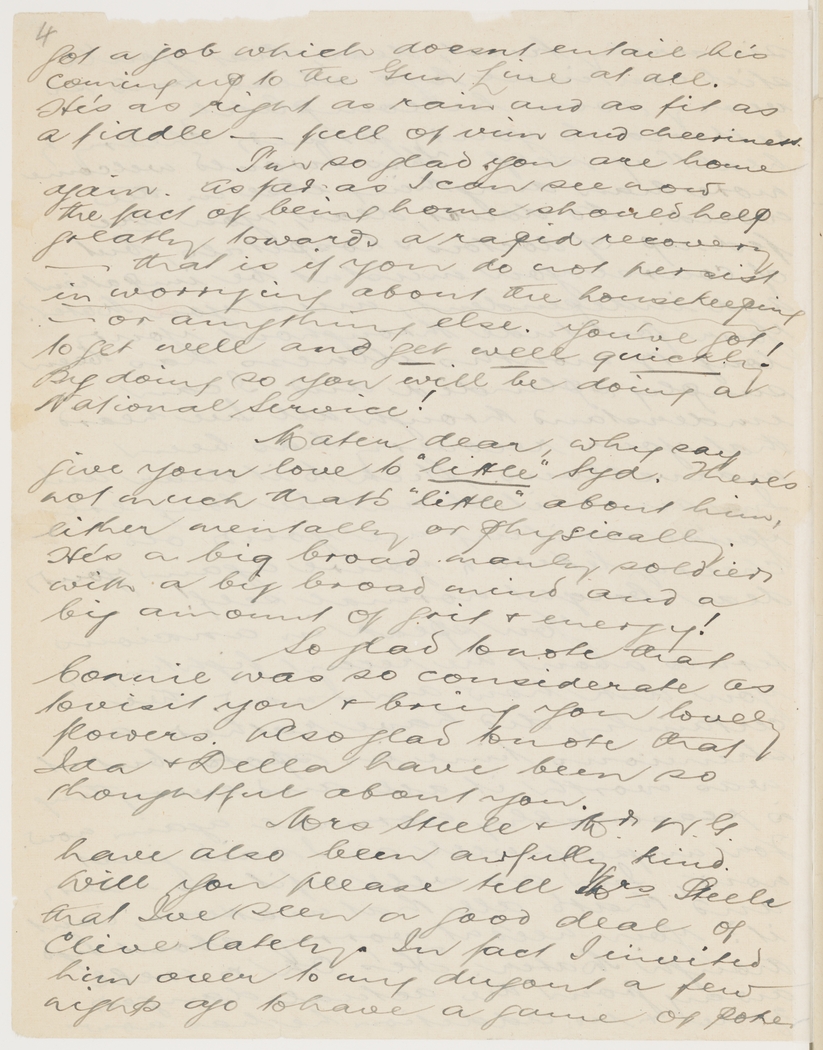 4
got a job which doesnt entail his
coming up to the Gun Line at all.
He's as right as rain and as fit as
a fiddle — full of vim and cheeriness.
I'm so glad you are home
again. As far as I can see now
the fact of being home should help
greatly towards a rapid recovery
— that is if you do not persist
in worrying about the housekeeping
— or anything else. You've got
to get well and get well quickly!
By doing so you will be doing a
National Service!
Mater dear, why say
give your love to "little" Syd. There's
not much that's "little" about him,
either mentally or physically.
He's a big broad manly soldier
with a big broad mind and a
big amount of grit & energy!
So glad to note that
Connie was so considerate as
to visit you & bring you lovely
flowers. Also glad to note that
Ida & Della have been so
thoughtful about you.
Mrs Steele & W.G.
have also been awfully kind.
Will you please tell Mrs Steele
that I've seen a good deal of
Clive lately. In fact I invited
him over to my dugout a few
nights ago to have a game of poker